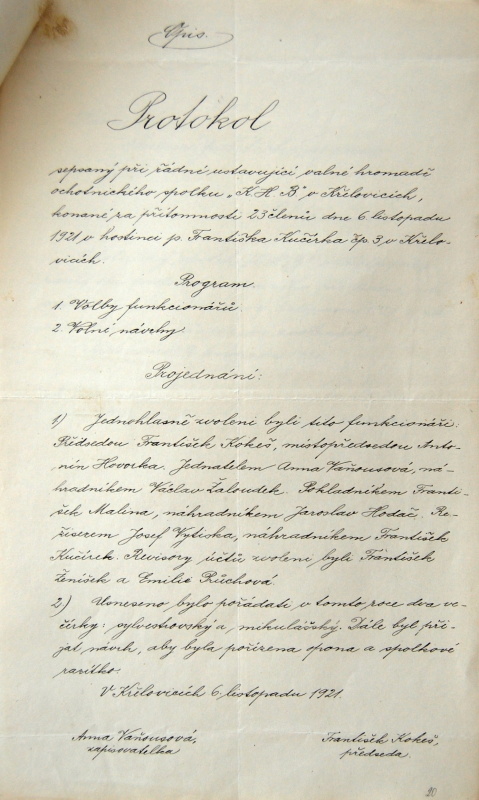 Opis.
Protokol
sepsaný při řádné ustavující valné hromadě
ochotnického spolku „K H B" v Křelovicích,
konané za přítomnosti 23 členů dne 6. listopadu
1921 v hostinci p. Františka Kučírka čp 3, v Křelo-
vicích.
Program.
1. Volby funkcionářů.
2. Volní návrhy.
Projednání:
1) Jednohlasně zvoleni byli tito funkcionáři:
Předsedou František Kokeš, místopředsedou Anto-
nín Hovorka. Jednatelem Anna Vaňousová, ná-
hradníkem Václav Žaloudek. Pokladníkem Franti-
šek Malina, náhradníkem Jaroslav Hodač. Re-
žiserem Josef Vytiska, náhradníkem František
Kučírek. Revisory účtů zvoleni byli František
Ženíšek a Emilie Průchová.
2) Usneseno bylo pořádati v tomto roce dva ve-
čírky: sylvestrovský a mikulášský. Dále byl při-
jat návrh, aby byla pořízena opona a spolkové
razítko.
V Křelovicích 6. listopadu 1921.
Anna Vaňousová,
zapisovatelka
František Kokeš,
předseda.
20